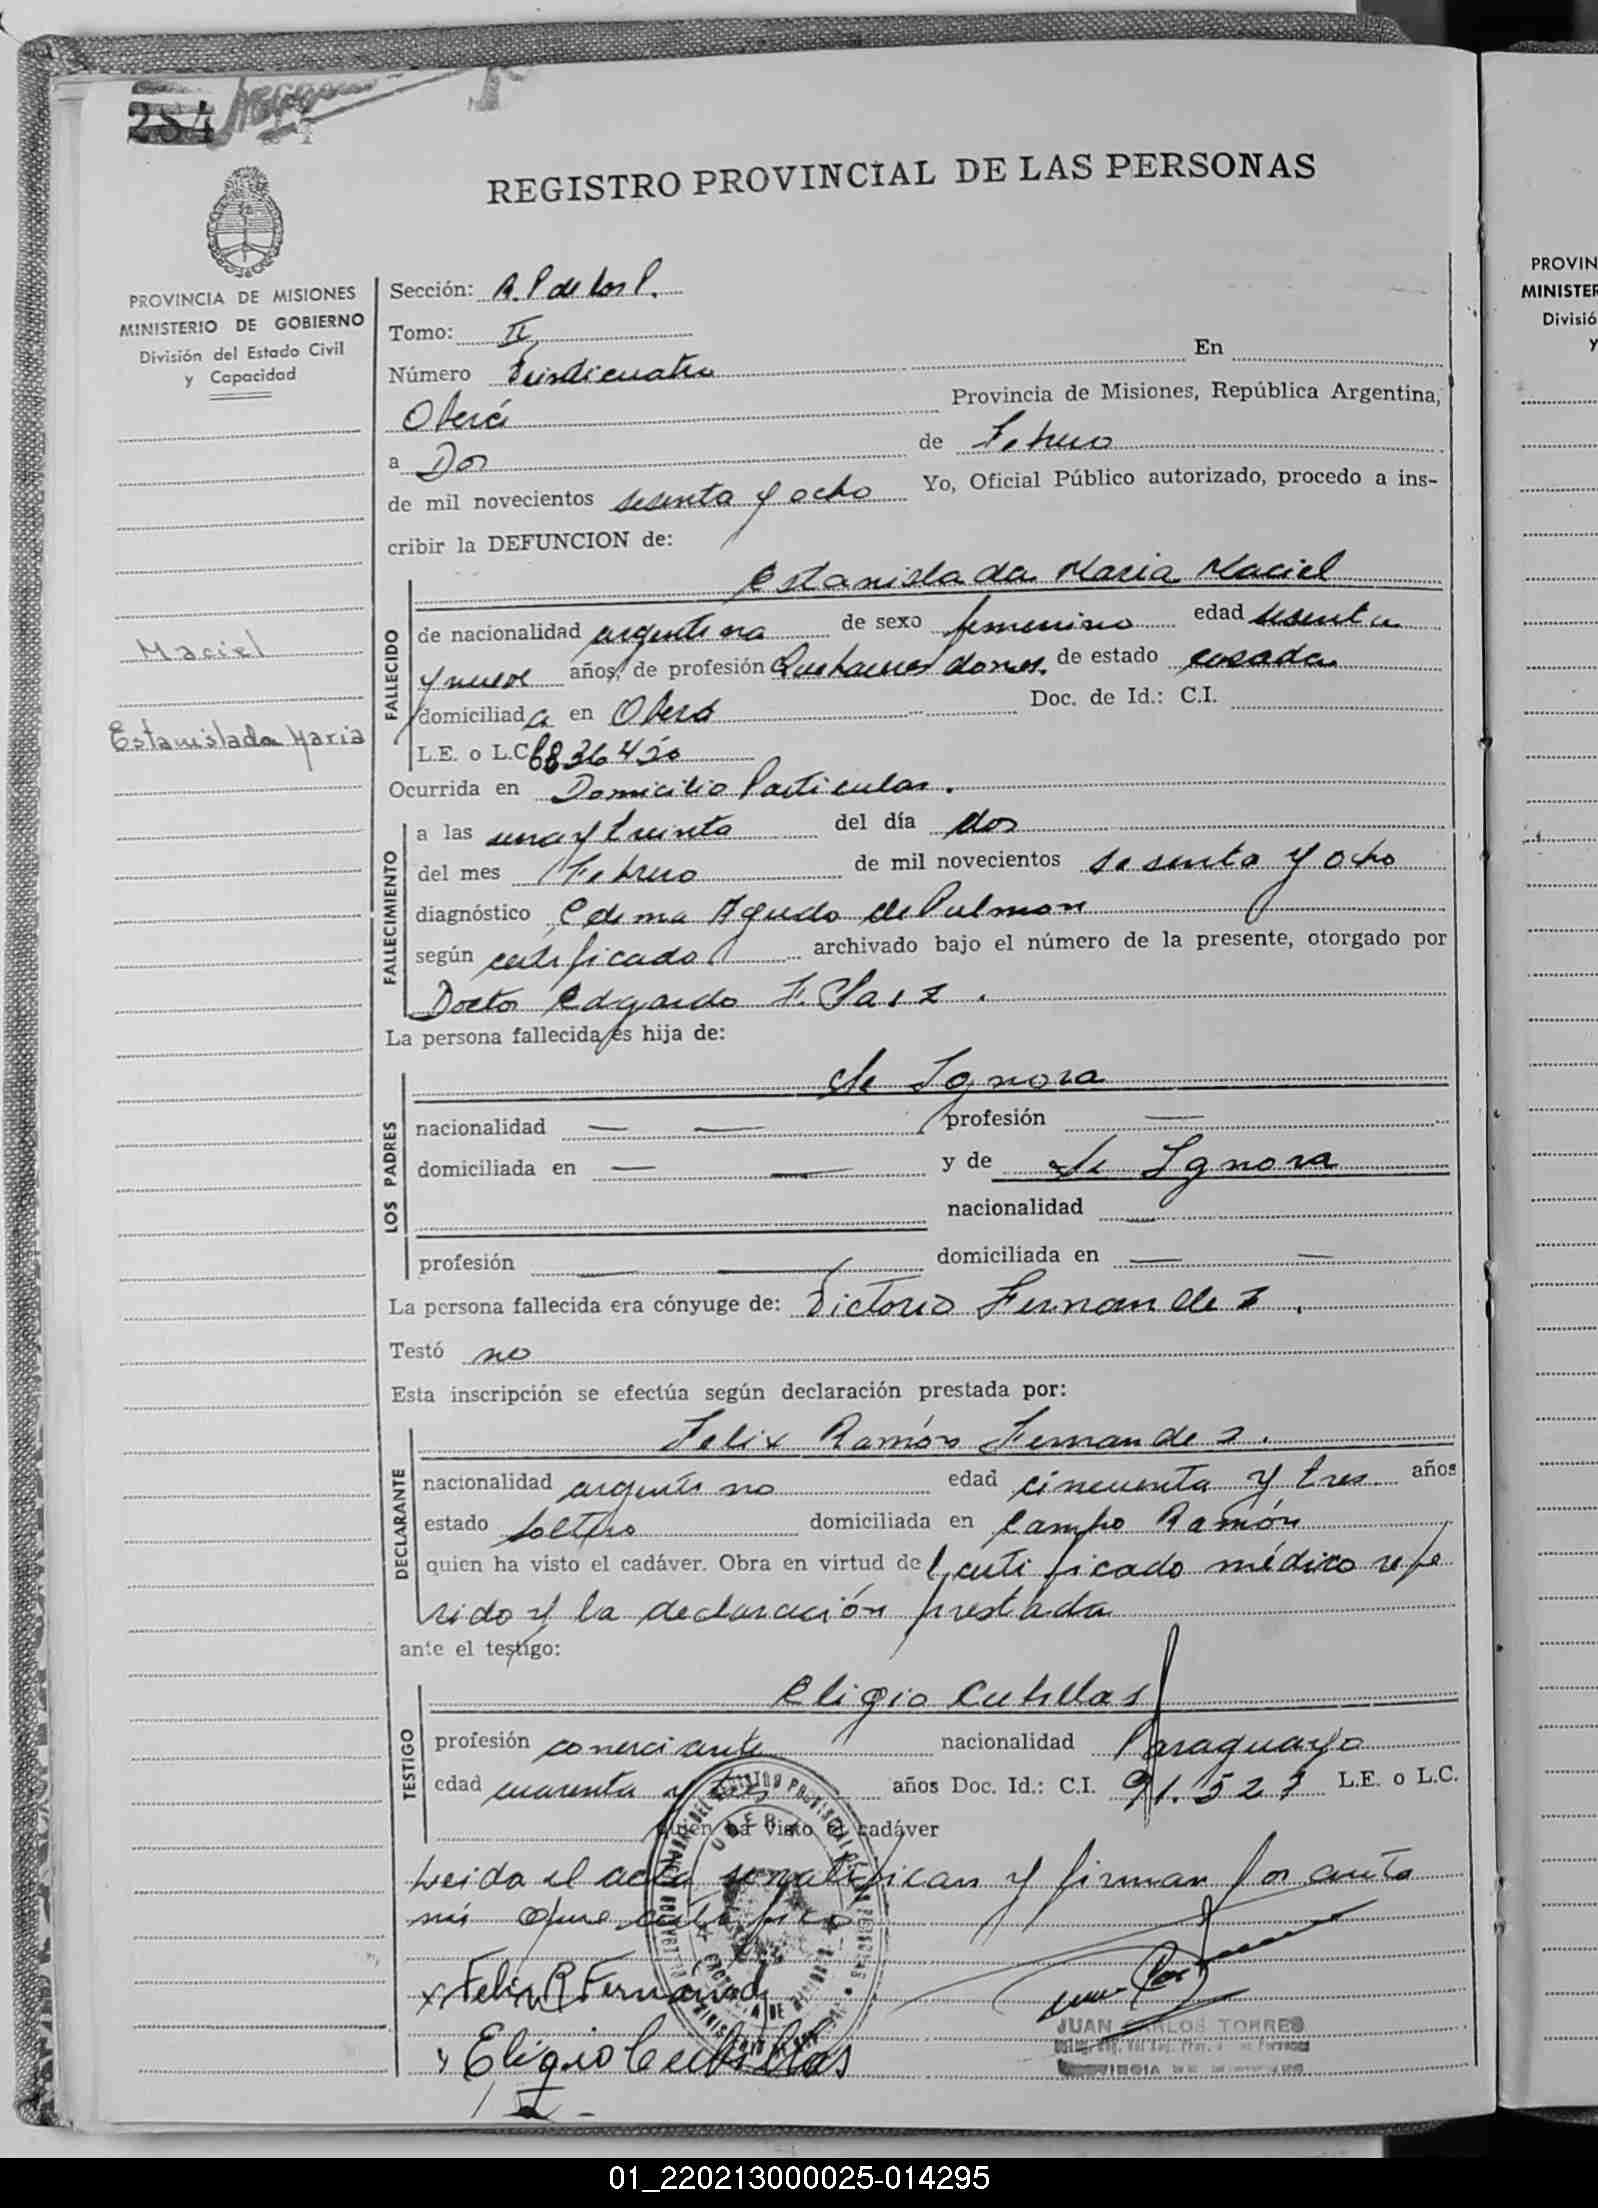 284
REGISTRO PROVINCIAL DE LAS PERSONAS
PROVINCIA DE MISIONES
MINISTERIO DE GOBIERNO
División del Estado Civil
y Capacidad
Maciel
Estanislada Maria
Sección: R. P de los P.
Tomo: II
Número Veinticuatro En
Oberá Provincia de Misiones, República Argentina,
a Dos de Febrero
de mil novecientos sesenta y ocho Yo, Oficial Público autorizado, procedo a ins-
cribir la DEFUNCION de:
Estanislada Maria Maciel
FALLECIDO
de nacionalidad argentina de sexo femenino edad sesenta
y nueve años, de profesión Quehaceres domes. de estado casada
domiciliada en Oberá Doc. de Id.: C.I.
L.E. o L.C.
Ocurrida en Domicilio Particular.
FALLECIMIENTO
a las una y treinta del día dos
del mes Febrero de mil novecientos sesenta y ocho
diagnóstico Edema Agudo de Pulmon
según certificado archivado bajo el número de la presente, otorgado por
Doctor Edgardo F. Saiz.
La persona fallecida es hija de:
LOS PADRES
Se Ignora
nacionalidad — — profesión —
domiciliada en — — y de Se Ignora
nacionalidad —
profesión — — domiciliada en — —
La persona fallecida era cónyuge de: Victorio Fernandez.
Testó no
Esta inscripción se efectúa según declaración prestada por:
DECLARANTE
Felix Ramón Fernandez.
nacionalidad argentino edad cincuenta y tres años
estado soltero domiciliada en Campo Ramón
quien ha visto el cadáver. Obra en virtud del certificado médico refe
rido y la declaración prestada
ante el testigo:
TESTIGO
Eligio Cubillas
profesión comerciante nacionalidad Paraguayo
edad cuarenta y tres años Doc. Id.: C.I. 91.527 L.E. o L.C.
quien ha visto el cadáver
Leida el acta se ratifican y firman por ante
mi que certifico
Felix R Fernand
Eligio Cubillas
JUAN CARLOS TORRES
PROVIN
MINISTER
Divisió
y
01_220213000025-014295